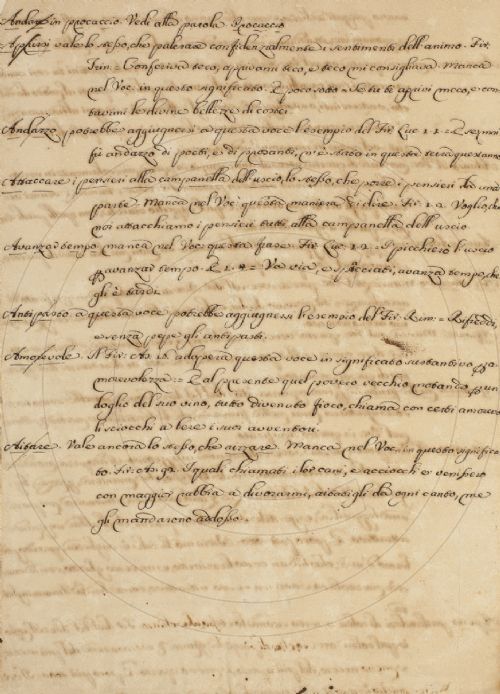 Andare in procaccio. Vedi alla parola Procaccio
Aprirsi vale lo stesso, che palesare confidenzialmente i sentimenti dell'animo. Fir.
Trin. = Conferiva teco, aprivami teco, e teco mi consigliava. Manca
nel Voc. in questo significato. E poco sotto = Se tu te aprivi meco, e con
tavami le divine bellezze di costei
Andazzo potrebbe aggiugnersi a questa voce l'esempio del Fir. Luc. 1. 2. = E se mai
fù andazzo di poeti, e di prosanti, n'è stato in questa terra questanno
Attaccare i pensieri alla campanella dell'uscio, lo stesso, che porre i pensieri da una
parte. Manca nel Voc. questa maniera di dire. Fir. 1. 2. Voglio, che
noi attacchiamo i pensieri tutti alla campanella dell'uscio
Avanzar tempo. manca nel Voc. questa frase. Fir. Luc. 1. 2. = I picchierò l'uscio
avanzar tempo. E 1. 4. = Va via, e spacciati, avanza tempo, che
gli è tardi.
Antipasto a questa voce potrebbe aggiugnersi l'esempio del Fir. Rim. =
e senza pepe gli antipasti.
Amorevole. Il Fir. As. 18. adopera questa voce in significato sustantivo
morevolezza = E al presente quel povero vecchio notando
doglio del suo vino, tutto divenuto fioco, chiama con certi amorevo
li sciocchi a bere i suoi avventori.
Aitare. Vale ancora lo stesso, che aizzare. Manca nel Voc. in questo significa
to. Fir. As. 92. I quali chiamati i lor cani, e acciocch'e' venissero
con maggior rabbia a divorarmi, aitatigli da ogni canto, me
gli mandarono addosso.